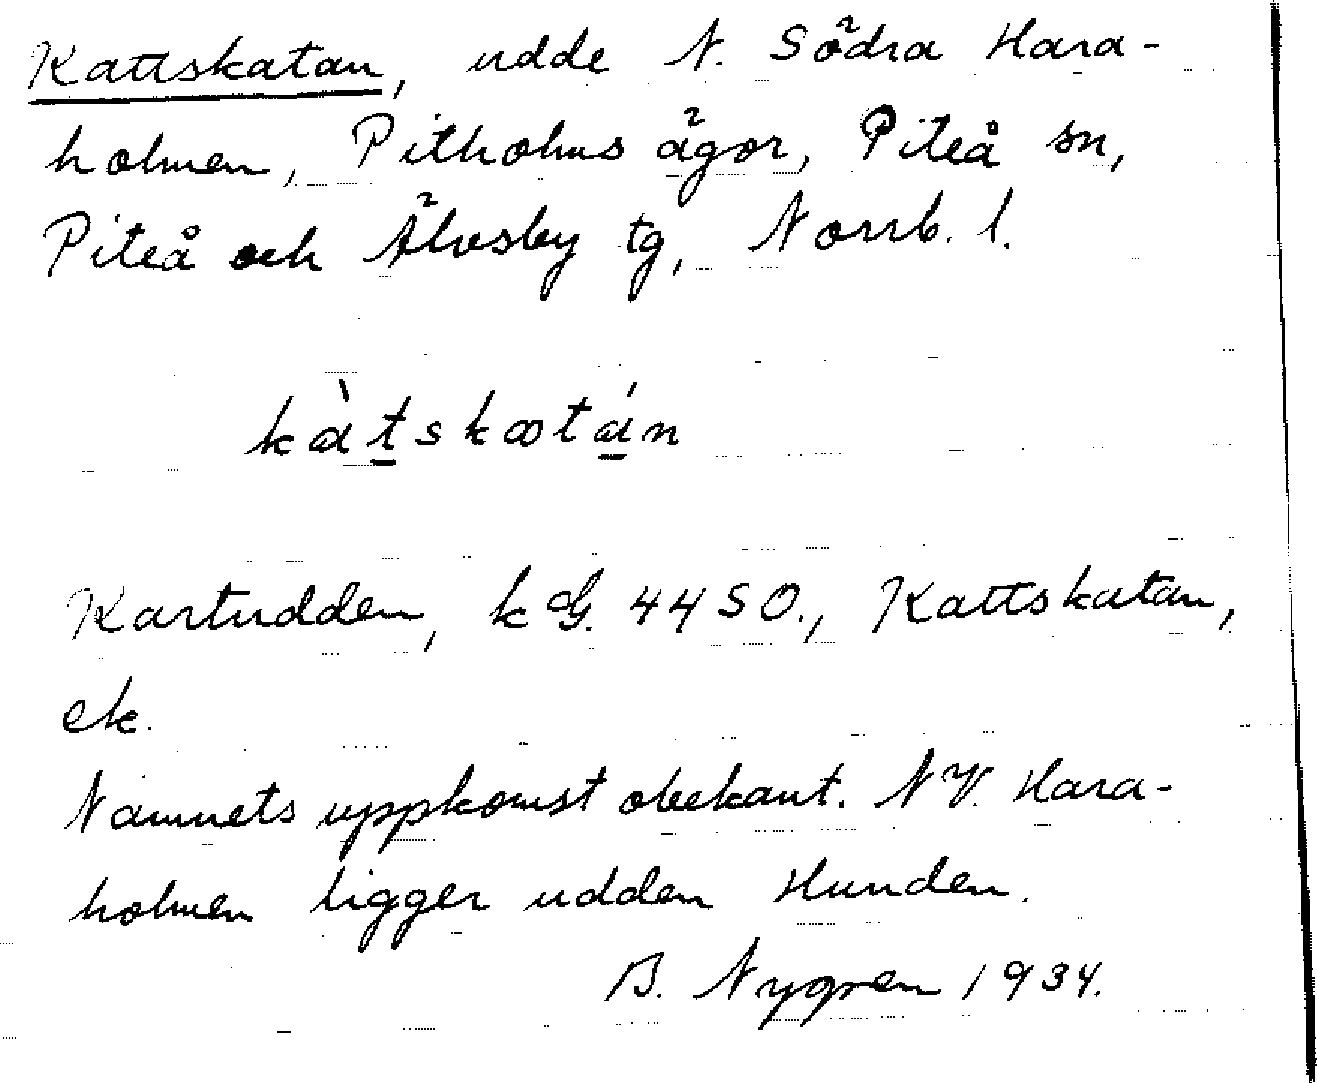 Kattskatan, udde N. Södra Hara-
holmen, Pitholms ägor, Piteå sn,
Piteå och Älvsby tg, Norrb. l.
Kartudden, kG. 4450., Kattskatan,
ek.
Namnets uppkomst obekant. NV. Hara-
holmen ligger udden Hunden.
B. Nygren 1934.